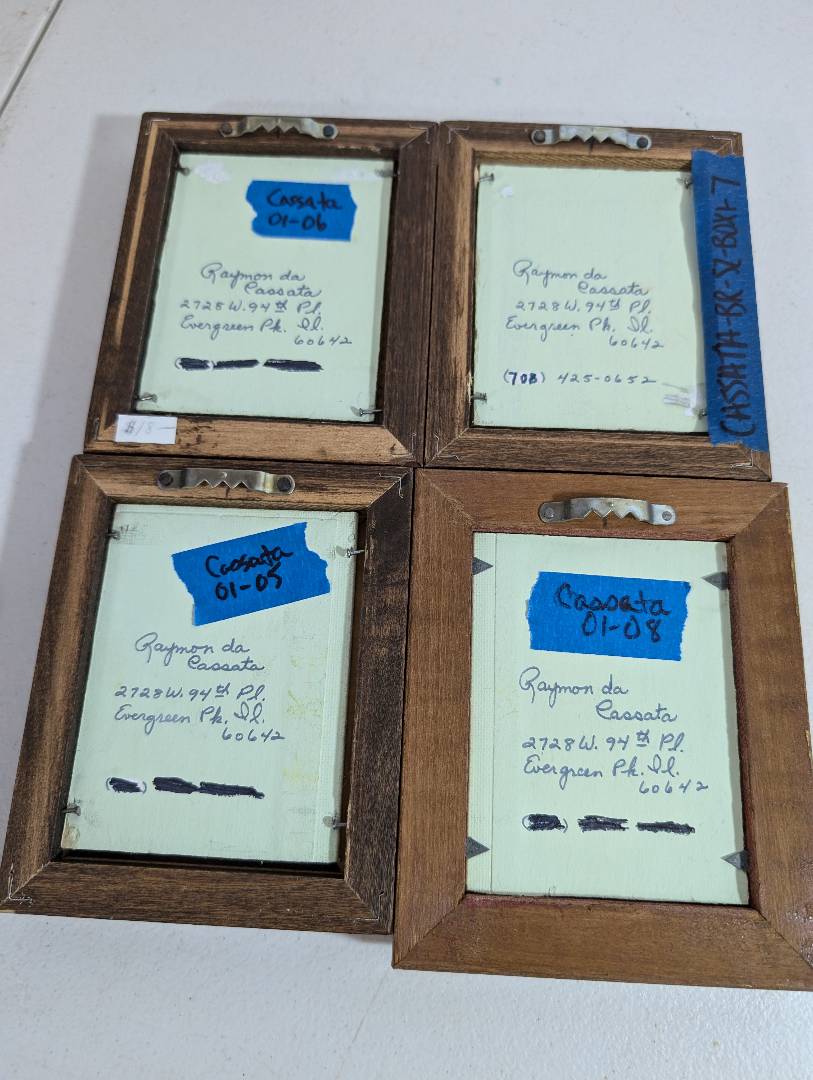 Cassata
01-06
Raymon da
Cassata
2728 W. 94th Pl.
Evergreen Pk. Il.
60642
$18—
Raymon da
Cassata
2728 W. 94th Pl.
Evergreen Pk. Il.
60642
(708) 425-0652
CASSATA-BR-S2-BOX1-7
Cassata
01-05
Raymon da
Cassata
2728 W. 94th Pl.
Evergreen Pk. Il.
60642
Cassata
01-08
Raymon da
Cassata
2728 W. 94th Pl.
Evergreen Pk. Il.
60642